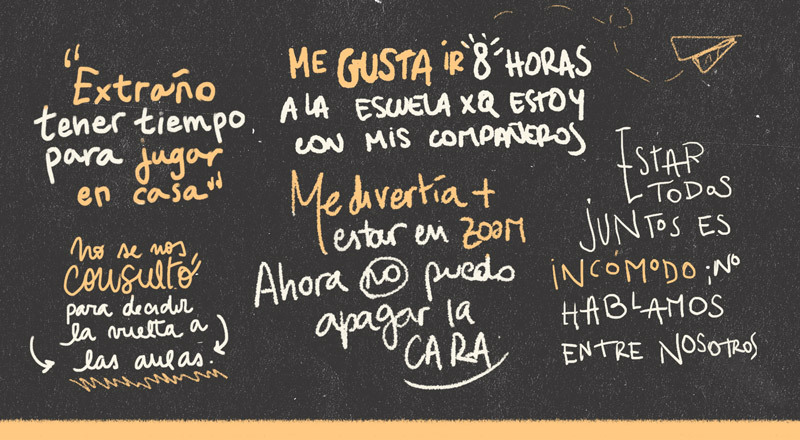 "Extraño
tener tiempo
para jugar
en casa"
no se nos
consultó
para decidir
la vuelta a
las aulas.
ME GUSTA iR 8 HORAS
A LA ESCUELA XQ ESTOY
CON MIS COMPAÑEROS
Me divertía +
estar en ZOOM
Ahora NO puedo
apagar la
CARA
ESTAR
TODOS
JUNTOS ES
iNCÓMODO ; NO
HABLAMOS
ENTRE NOSOTROS